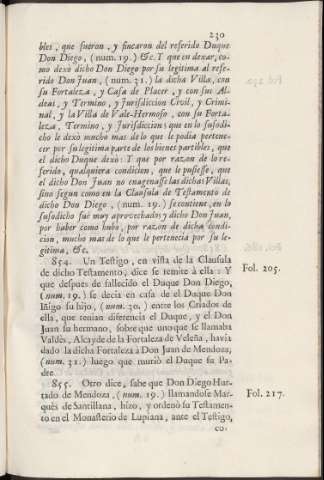 230
bles, que fueron, y fincaron del referido Duque
Don Diego, (num. 19.) &c. Y que en dexar, co-
mo dexò dicho Don Diego por su legitima al refe-
rido Don Juan, (num. 31.) la dicha Villa, con
su Fortaleza, y Casa de Placer, y con sus Al-
deas, y Termino, y Jurisdiccion Civil, y Crimi-
nal, y la Villa de Vale-Hermoso, con su Forta-
leza, Termino, y Jurisdiccion: que en lo susodi-
cho le dexò mucho mas de lo que le podia pertene-
cer por su legitima parte de los bienes partibles, que
el dicho Duque dexò: Y que por razon de lo re-
ferido, qualquiera condicion, que le pusiesse, que
el dicho Don Juan no enagenasse las dichas Villas,
sino segun como en la Clausula de Testamento de
dicho Don Diego, (num. 19.) se contiene, en lo
susodicho fuè muy aprovechado; y dicho Don Juan,
por haber como hubo, por razon de dicha condi-
cion, mucho mas de lo que le pertenecia por su le-
gitima, &c.
854. Un Testigo, en vista de la Clausula
de dicho Testamento, dice se remite à ella: Y
Fol. 205.
que despues de fallecido el Duque Don Diego,
(num. 19.) se decia en casa de el Duque Don
Iñigo su hijo, (num. 30.) entre los Criados de
ella, que tenian diferencia el Duque, y el Don
Juan su hermano, sobre que uno que se llamaba
Valdès, Alcayde de la Fortaleza de Veleña, havia
dado la dicha Fortaleza à Don Juan de Mendoza,
(num. 31.) luego que muriò el Duque su Pa-
dre.
855. Otro dice, sabe que Don Diego Hur-
tado de Mendoza, (num. 19.) llamandose Mar-
Fol. 217.
quès de Santillana, hizo, y ordenò su Testamen-
to en el Monasterio de Lupiana, ante el Testigo,
co-